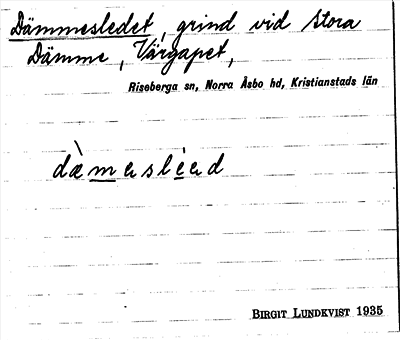 Dämmesledet, grind vid Stora
Dämme, Värgapet,
Riseberga sn, Norra Åsbo hd, Kristianstads län
dæ̀mɐsléɐd
BIRGIT LUNDKVIST 1935